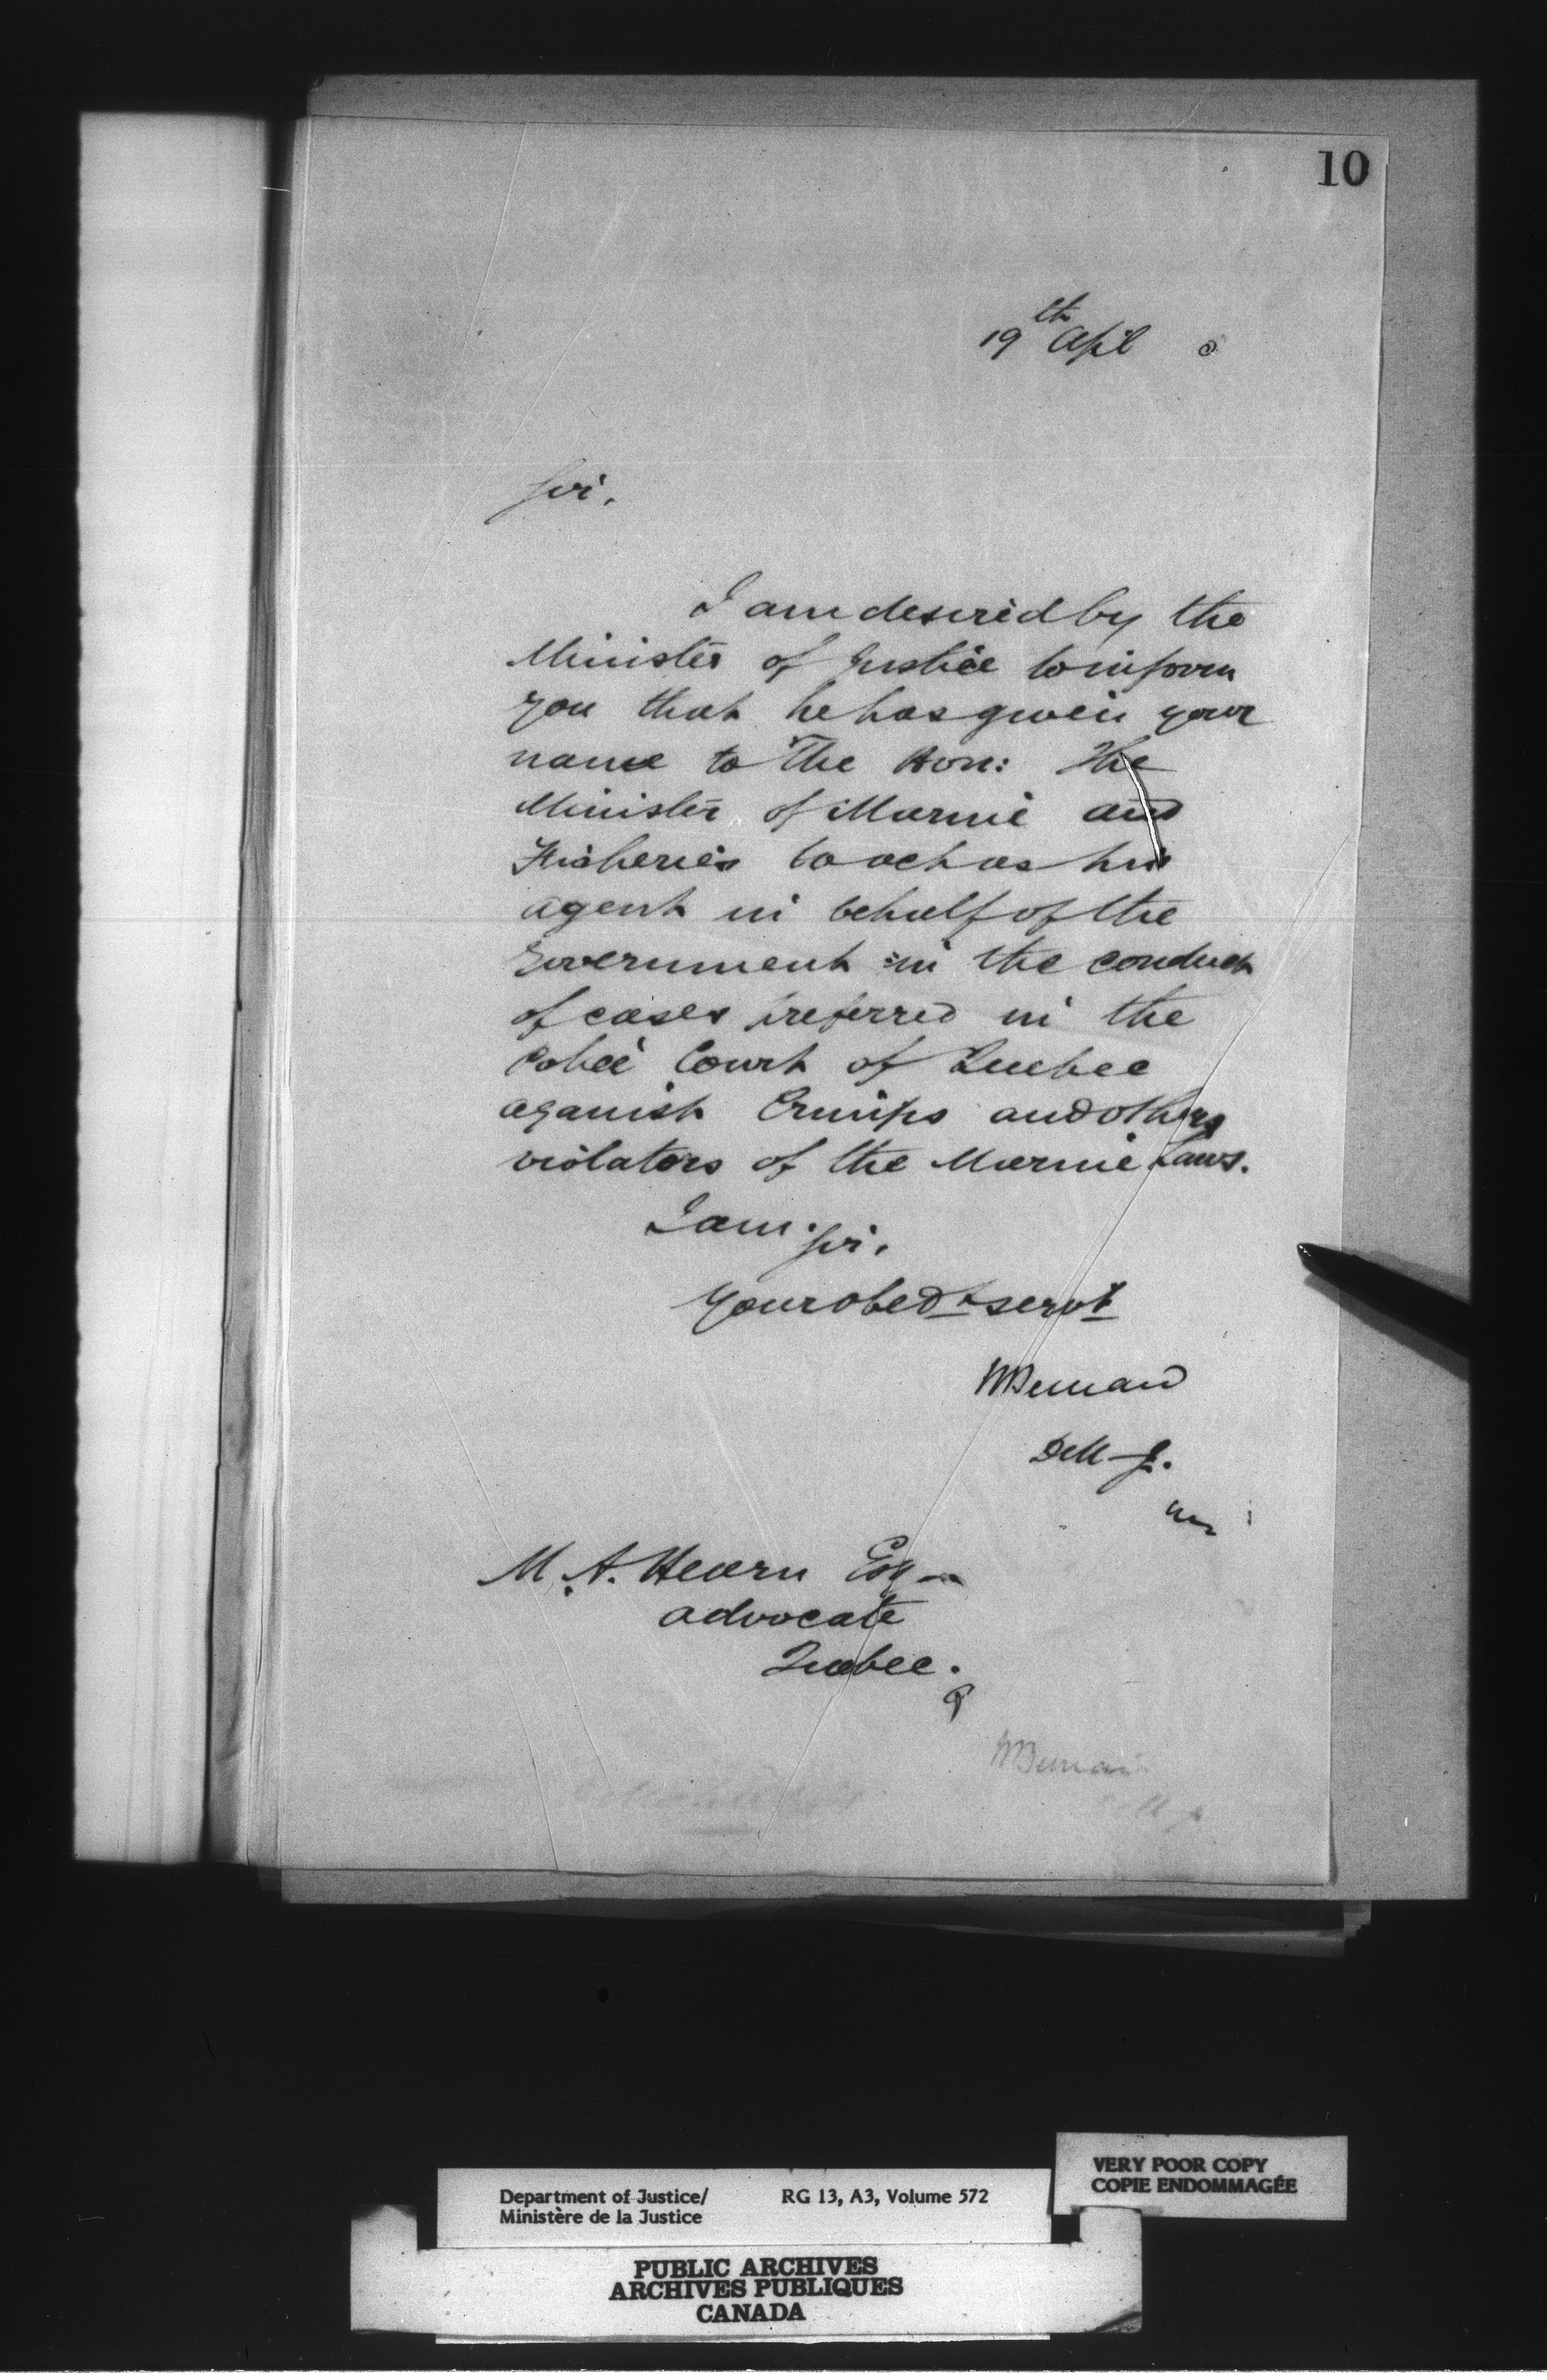 10
19th Apl
Sir,
I am desired by the
Minister of Justice to inform
you that he has given your
name to The Hon: The
Minister of Marine and
Fisheries to act as his
agent in behalf of the
Government in the conduct
of cases preferred in the
Police Court of Quebec
against Crimps and others
violators of the Marine Laws.
I am Sir,
Your obedt servt
HBernard
DM J.
M. A. Hearn Esq
advocate
Quebec.
HBernard
Department of Justice/ RG 13, A3, Volume 572
Ministère de la Justice
VERY POOR COPY
COPIE ENDOMMAGÉE
PUBLIC ARCHIVES
ARCHIVES PUBLIQUES
CANADA